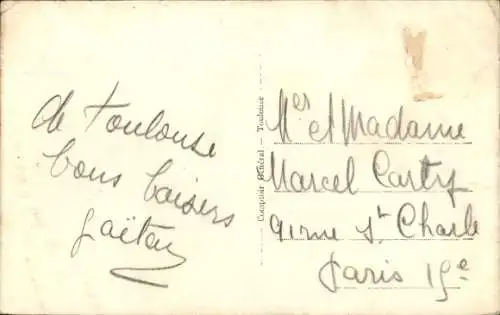 de Toulouse
bons baisers
Gaëtan
Comptoir Général - Toulouse
Mer et Madame
Marcel Carty
91 rue St Charle
Paris 15e